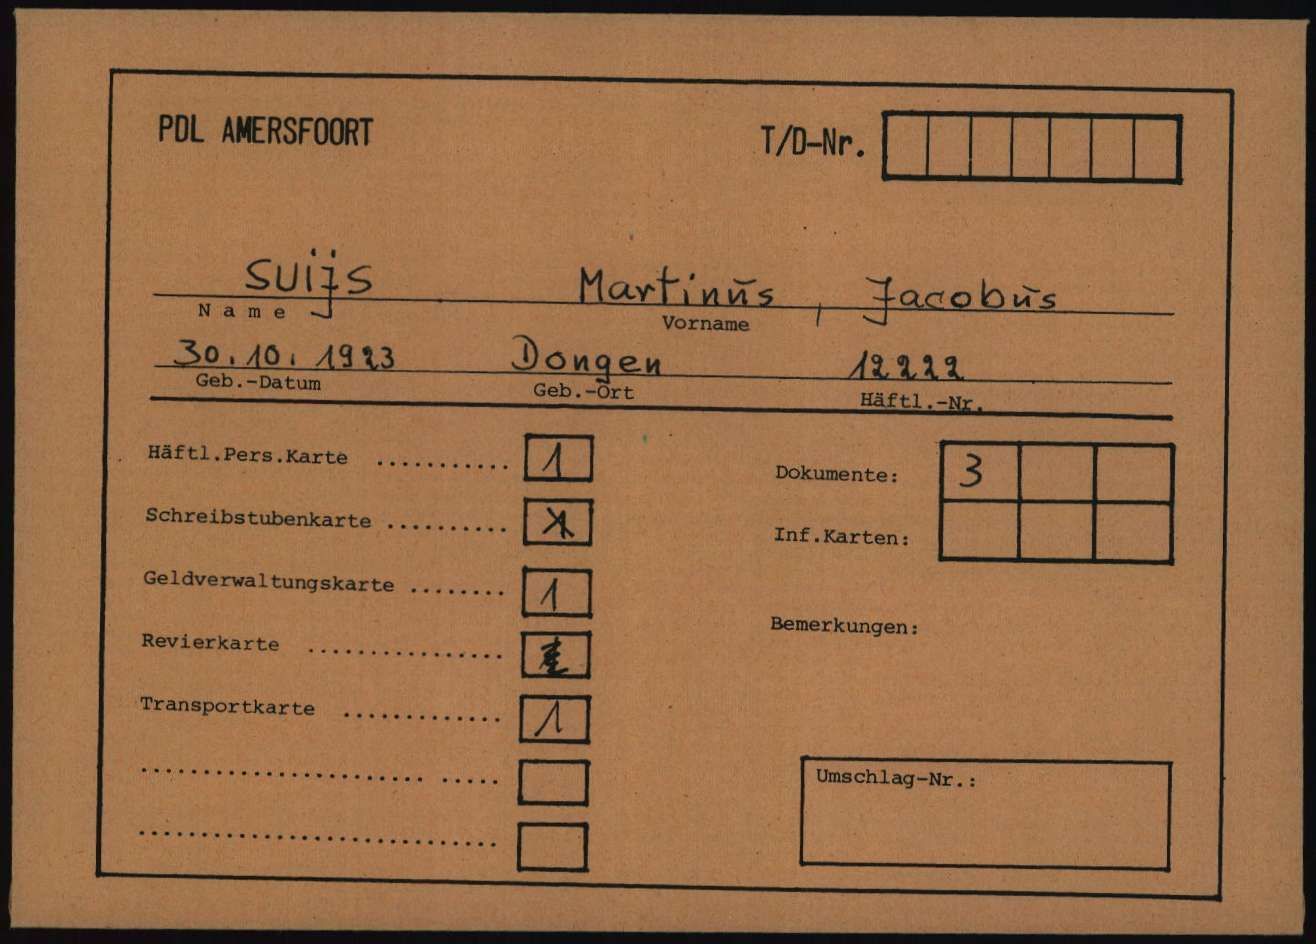 PDL AMERSFOORT T/D-Nr.
Suijs Martinus Jacobus
Name Vorname
30.10.1923 Dongen 12222
Geb.-Datum Geb.-Ort Häftl.-Nr.
Häftl.Pers.Karte ........... 1
Dokumente: 3
Schreibstubenkarte ..........
Inf.Karten:
Geldverwaltungskarte ........ 1
Bemerkungen:
Revierkarte ................
Transportkarte ............. 1
Umschlag-Nr.: